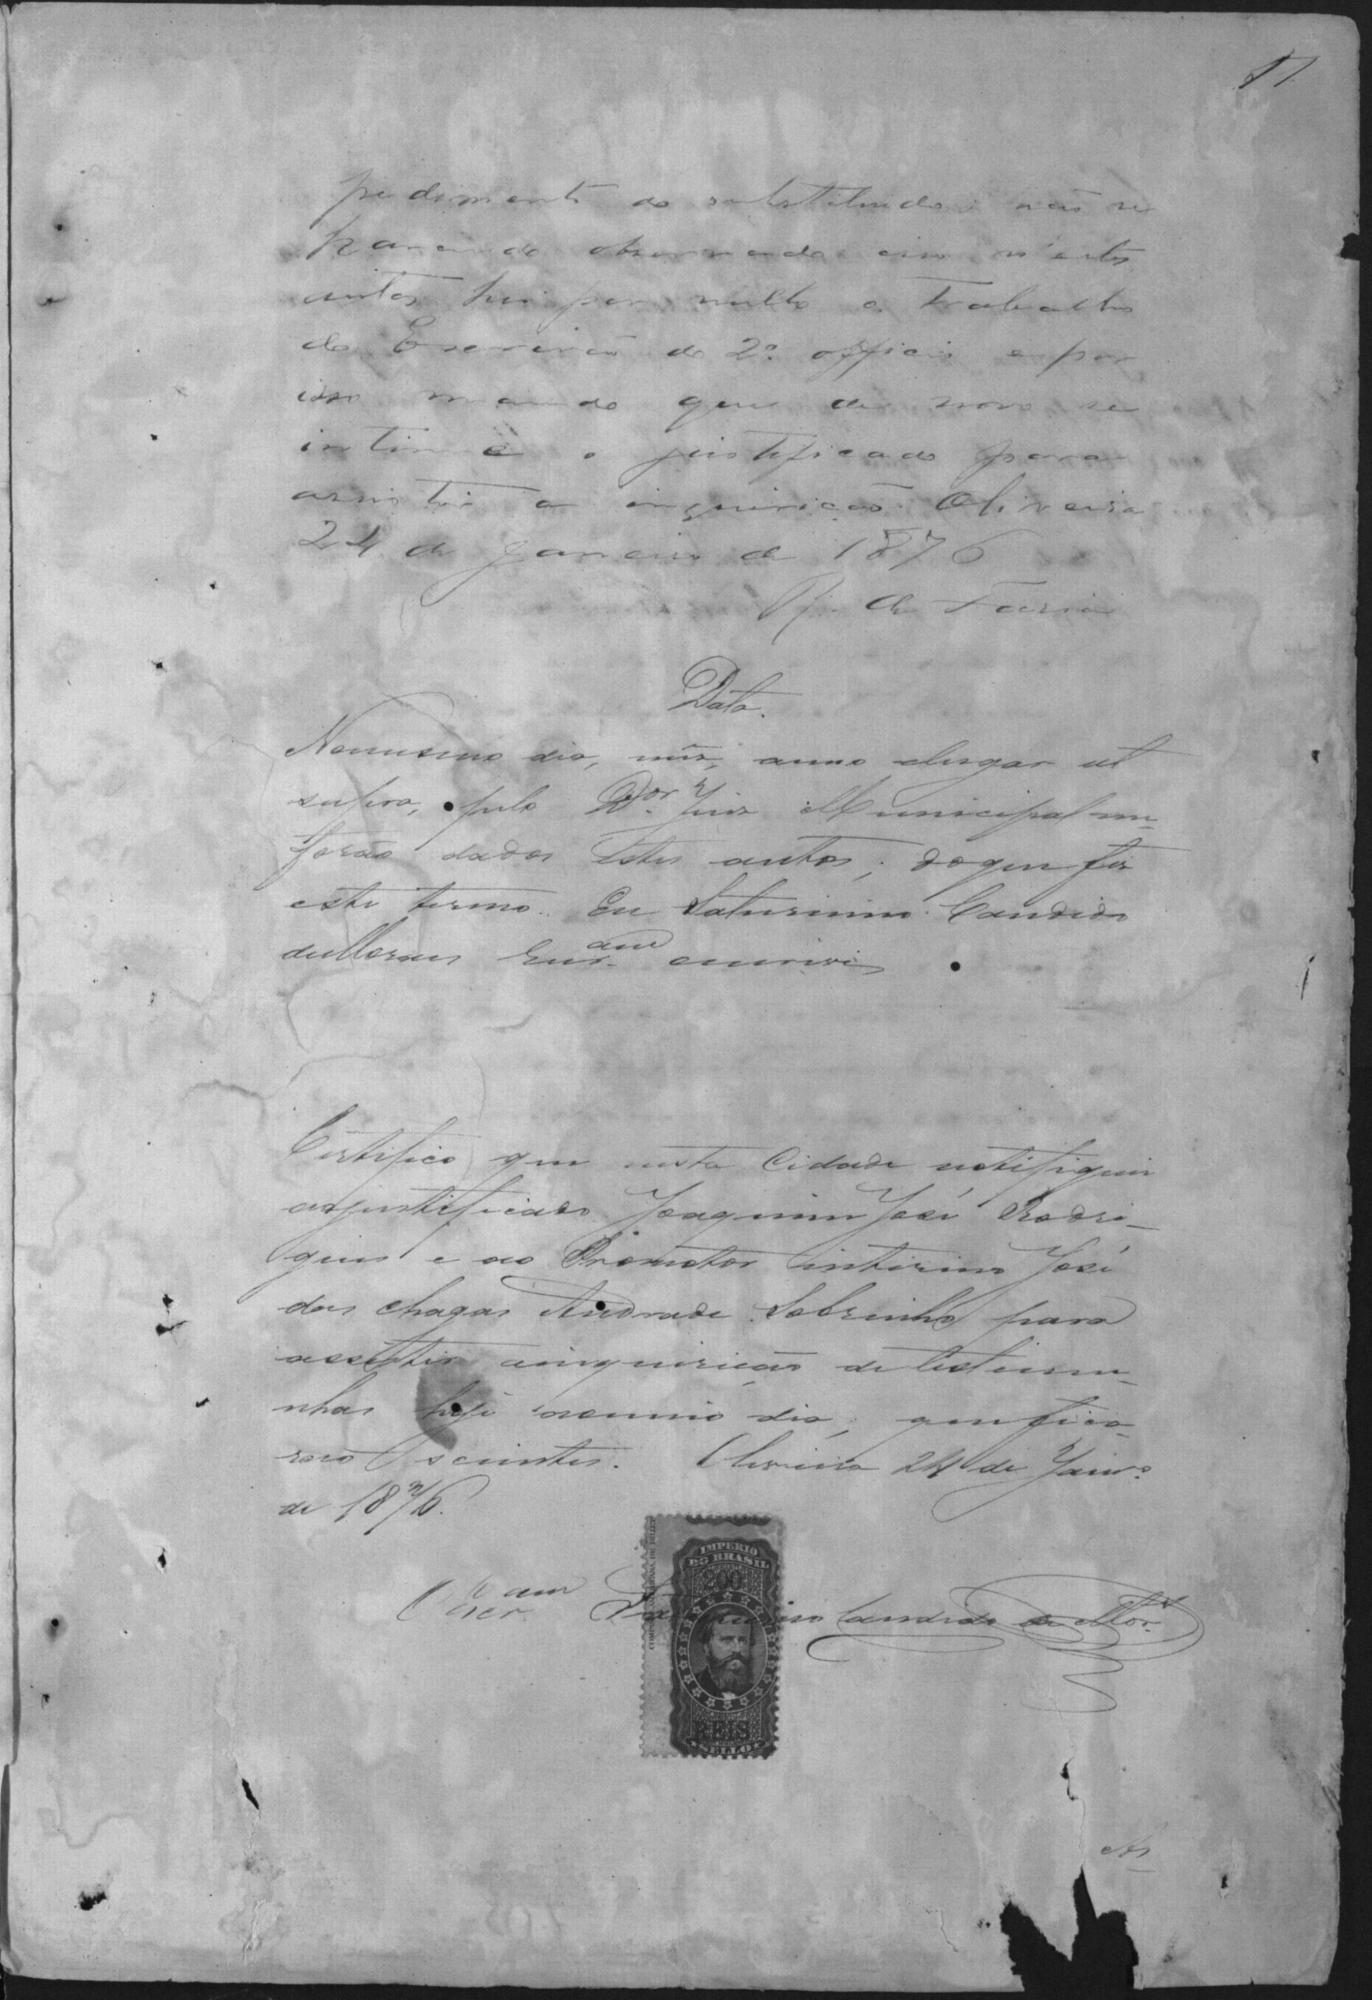 17
pedimento do substituido; não se
tratando observado isso n'estes
autos hei por nullo o trabalho
do Escrivão do 2º officio e por
isso mando que de novo se
intime o justificado para
assistir a inquirição. Oliveira
24 de Janeiro de 1876
R. de Faria
Data.
No mesmo dia, mez, anno elugar ut
supra, pelo Dor. Juiz Municipal me
forão dados estes autos; do que fiz
este termo. Eu Saturnino Candido
de Moraes Escr.am escrivi
Certifico que nesta Cidade notifiquei
ao justificado Joaquim José Rodri-
gues e ao Promotor interino José
das Chagas Andrade Sobrinho para
assistir ainquirição de testemu-
nhas hoje, ao meio dia, que fica-
rão scientes. Oliveira 24 de Janro.
de 1876.
O Escr.am Saturnino Candido de Mor.
IMPERIO
DO BRASIL
200
REIS
SELLO
As